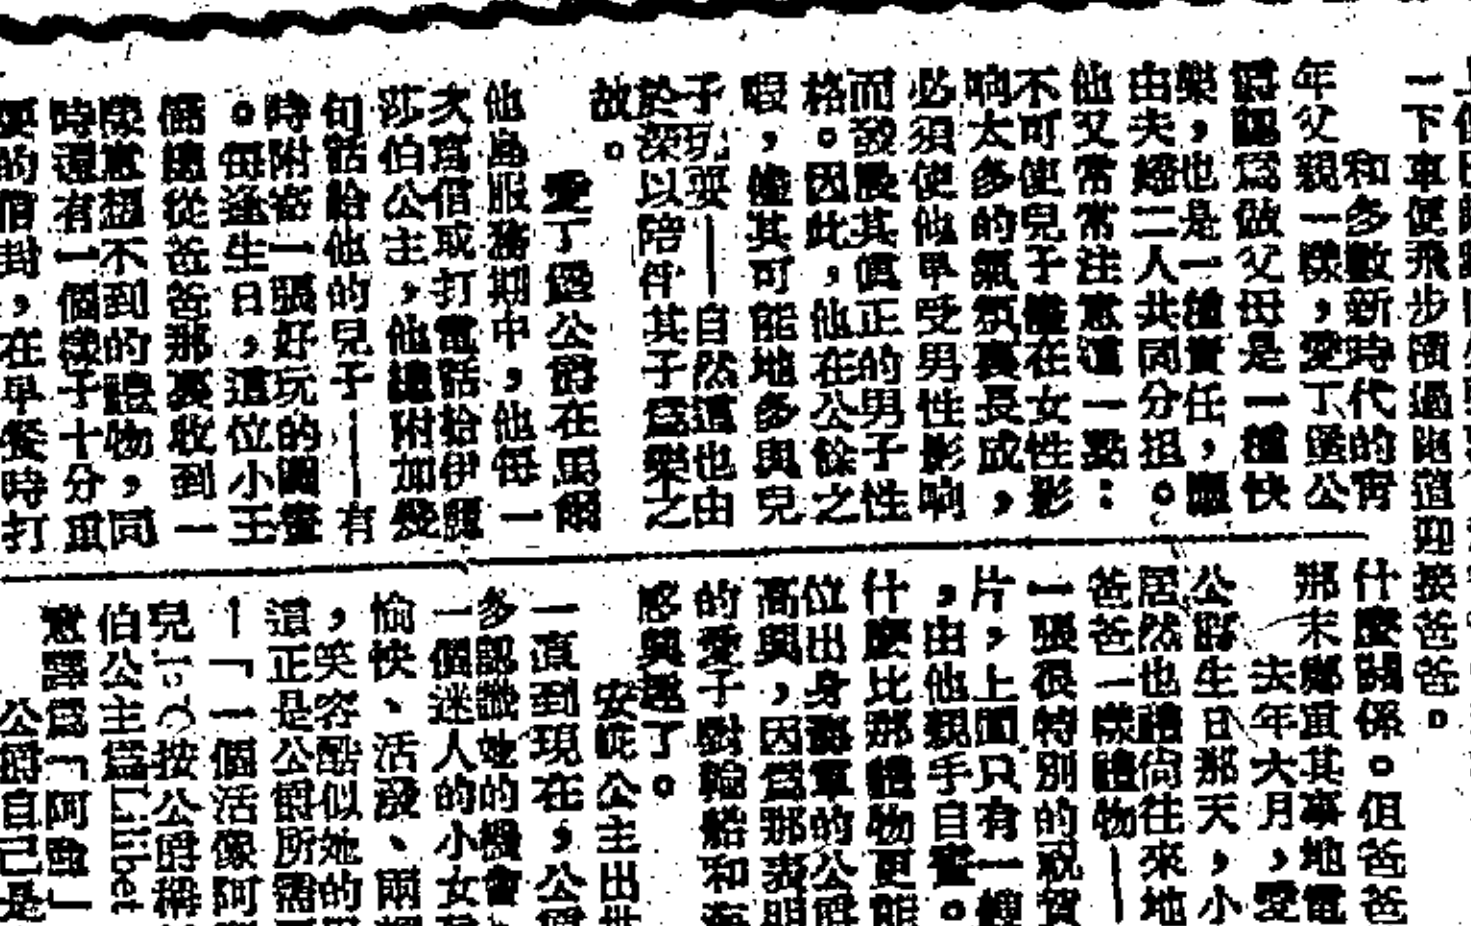 一下車便飛步滨過跑道迎接爸爸。
和多數新時代的靑
年父親一樣，愛丁堡公
爵認爲做父母是一種快
樂，也是一種責任，應
由夫婦二人共同分担。
他父常常注意這一點：
不可使兒子儘在女性影
响太多的氣氛裏長成，
必須使他早受男性影响
而發展其眞正的男子性
格。因此，他在公餘之
暇，儘其可能地多與兒
子玩耍—自然這也由
於深以陪伴其子爲樂之
故。
愛丁堡公爵在馬爾
他島服務期中，他每一
次寫信或打電話給伊麗
莎伯公主，他總附加幾
句話給他的兒子——有
時附寄一張好玩的圖畫
。每逢生日，這位小王
儲總從爸爸那裏收到一
樣意想不到的禮物，同
時還有一個樣子十分重
要的信封，在早餐時打
什麼關係。但爸爸
那末鄭重其事地電
去年大月，愛
公爵生日那天，小
居然也禮尙往來地
爸爸一樣禮物——
一張很特別的祝賀
片，上面只有一艘
，由他親手自畫。
什麼比那禮物更能
位出身海軍的公爵
高興，因爲那表明
的愛子對輪船和海
感興趣了。
安妮公主出世
一直到現在，公爵
多認識她的機會
一個迷人的小女孩
愉快、活潑、兩頰
，笑容酷似她的
這正是公爵所需
—「一個活像阿
兒按公爵稱
伯公主爲Lilibet
意譯爲「阿
公爵自己是